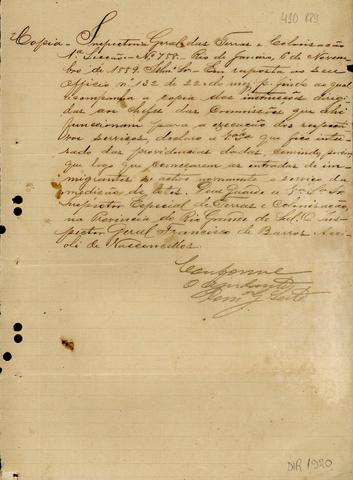 410 889
Copia. Inspectoria Geral das Terras e Colonisação
1ª Secção. Nº 788. Rio de Janeiro, 6 de Novem
bro de 1889. Illmº Sr. Em resposta ao seu
officio nº 132 de 22 do mez p. findo ao qual
acompanha a copia das instrucções dirigi
das aos Chefes das Commissões que ahi
funccionam para a execução dos respecti
vos serviços, declaro a V.Sª que fico intei
rado das providencias dadas, convindo porém
que logo que comecarem as entradas de im
migrantes se active novamente o serviço da
medicão de lotes. Deus Guarde a V.Sª Sr.
Inspector Especial de Terras e Colonisação,
na Provincia do Rio Grande do Sul. O Ins
pector Geral Francisco de Barros Acci
oli de Vasconcellos.
Conforme
O Ajudante
Leite
DIR 1920